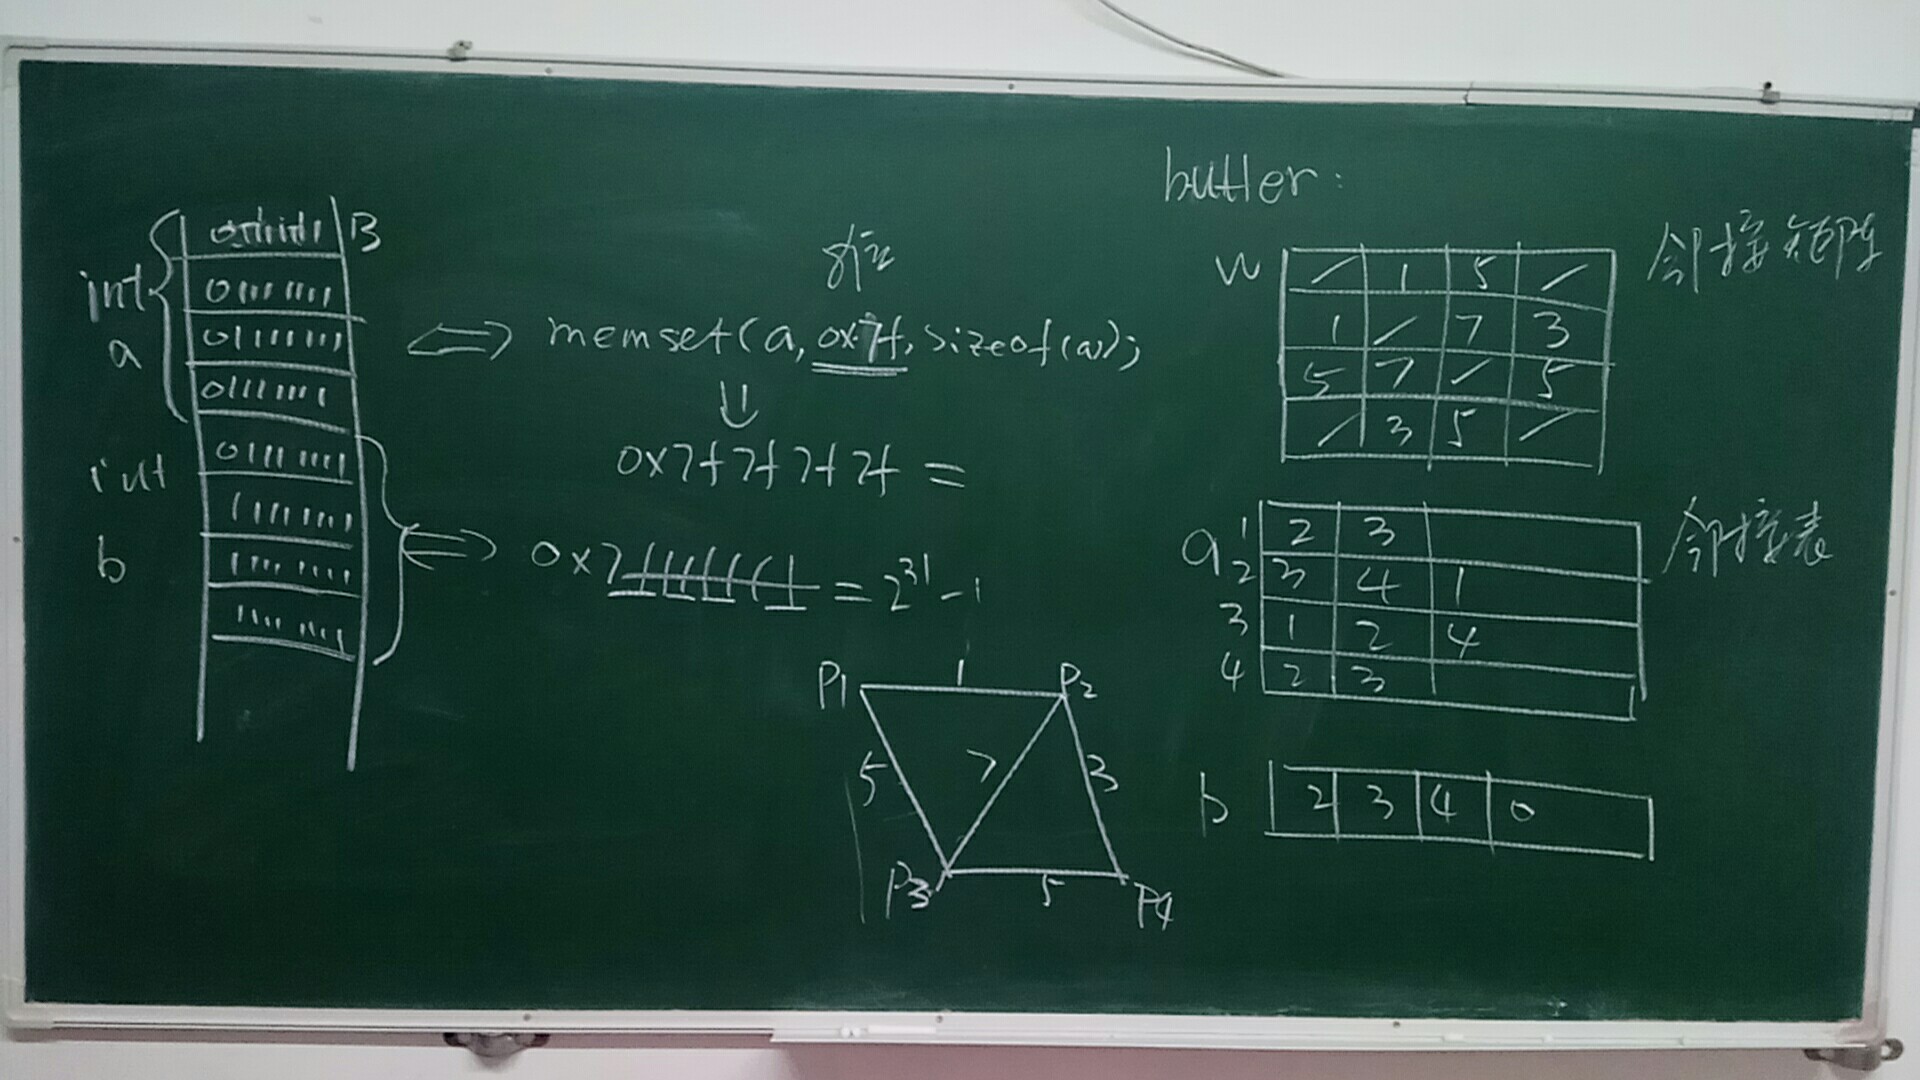 01111111 B
int 01111111
a 01111111
01111111
int 01111111
11111111
b 11111111
11111111
8位
memset(a, 0x7f, sizeof(a));
⇓
0x7f7f7f7f =
0x7fffffff = 2^31 - 1
P1 1 P2
5 7 3
P3 5 P4
butler:
w 邻接矩阵
/ 1 5 /
1 / 7 3
5 7 / 5
/ 3 5 /
a 邻接表
1 2 3
2 3 4 1
3 1 2 4
4 2 3
b 2 3 4 0